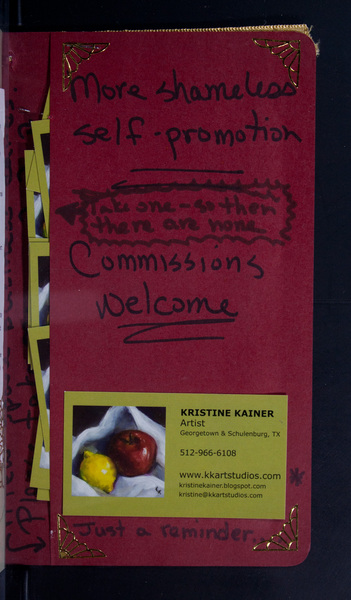 More shameless
self-promotion
Take one - so then
there are none
Commissions
Welcome
KRISTINE KAINER
Artist
Georgetown & Schulenburg, TX
512-966-6108
www.kkartstudios.com
kristinekainer.blogspot.com
kristine@kkartstudios.com
*
Just a reminder...